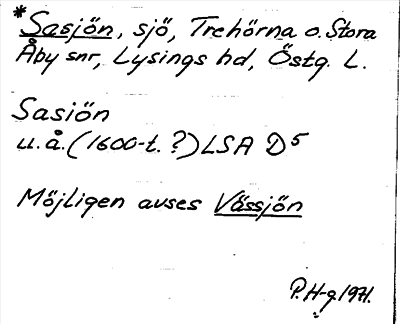 *Sasjön, sjö, Trehörna o. Stora
Åby snr, Lysings hd, Östg. L.
Sasiön
u.å. (1600-t. ?) LSA D5
Möjligen avses Vässjön
P. H-g. 1971.